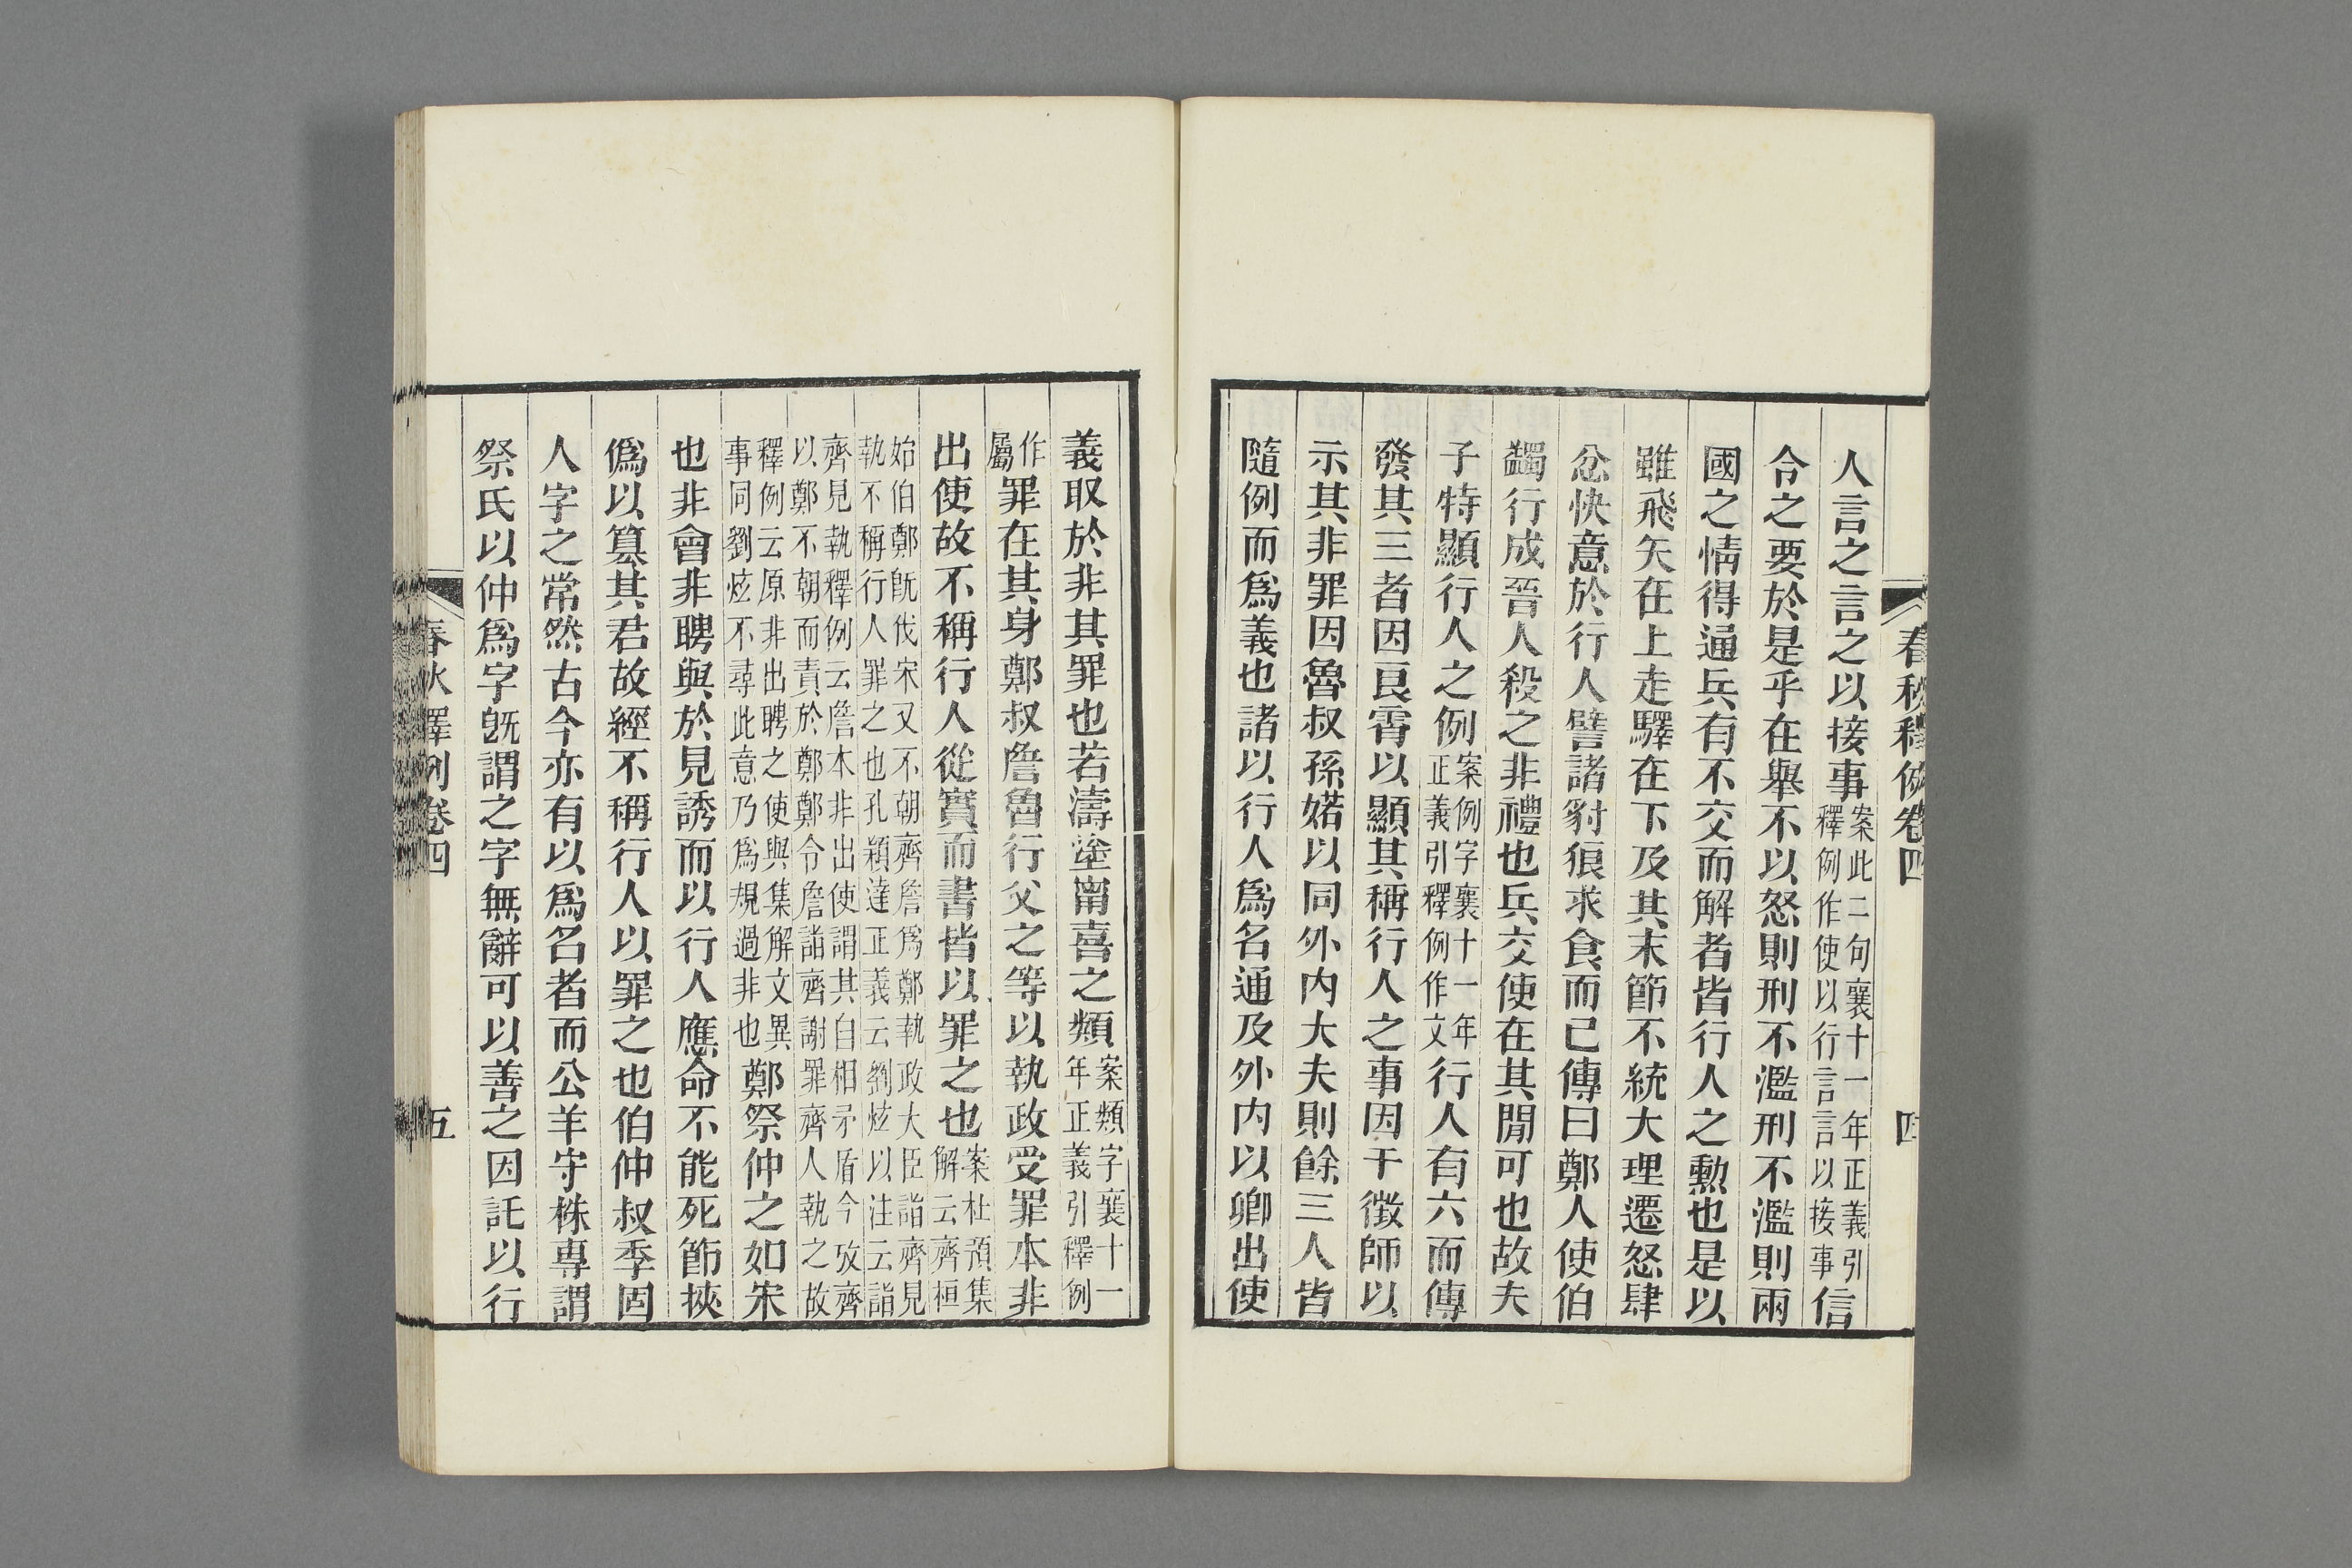 春秋釋例卷四 四
人言之言之以接事案此二句襄十一年正義引釋例作使以行言言以接事信
令之要於是乎在舉不以怒則刑不濫刑不濫則兩
國之情得通兵有不交而解者皆行人之勳也是以
雖飛矢在上走驛在下及其末節不統大理遷怒肆
忿快意於行人譬諸豺狼求食而已傳曰鄭人使伯
蠲行成晉人殺之非禮也兵交使在其閒可也故夫
子特顯行人之例案例字襄十一年正義引釋例作文行人有六而傳
發其三者因良霄以顯其稱行人之事因干徵師以
示其非罪因魯叔孫婼以同外内大夫則餘三人皆
隨例而爲義也諸以行人爲名通及外内以卿出使
義取於非其罪也若濤塗甯喜之類案類字襄十一年正義引釋例
作屬罪在其身鄭叔詹魯行父之等以執政受罪本非
出使故不稱行人從實而書皆以罪之也案杜預集解云齊桓
始伯鄭旣伐宋又不朝齊詹爲鄭執政大臣詣齊見執不稱行人罪之也孔穎達正義云劉炫以注云詣
齊見執釋例云詹本非出使謂其自相矛盾今攷齊以鄭不朝而責於鄭鄭令詹詣齊謝罪齊人執之故
釋例云原非出聘之使與集解文異事同劉炫不尋此意乃爲規過非也鄭祭仲之如宋
也非會非聘與於見誘而以行人應命不能死節挾
僞以篡其君故經不稱行人以罪之也伯仲叔季固
人字之常然古今亦有以爲名者而公羊守株專謂
祭氏以仲爲字旣謂之字無辭可以善之因託以行
春秋釋例卷四 五